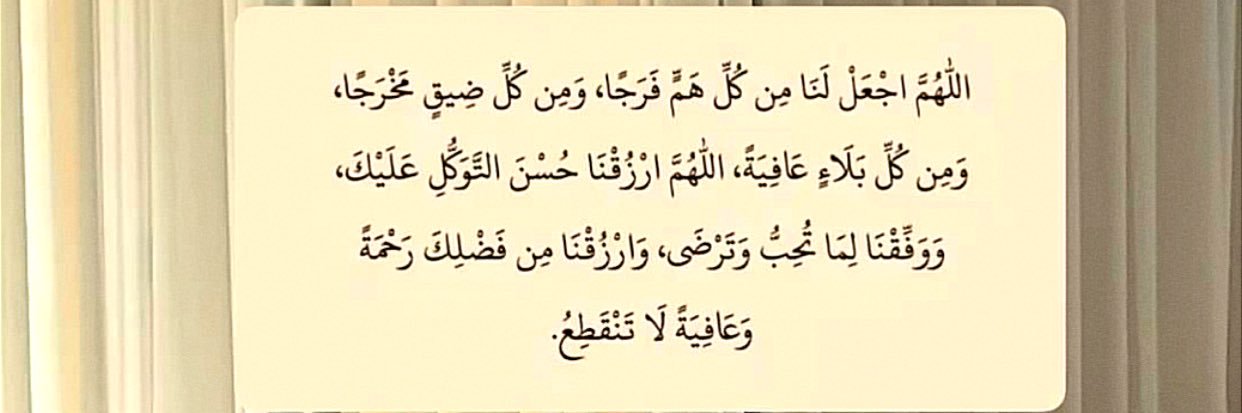 اللَّهُمَّ اجْعَلْ لَنَا مِن كُلِّ هَمٍّ فَرَجًا، وَمِن كُلِّ ضِيقٍ مَخْرَجًا،
وَمِن كُلِّ بَلَاءٍ عَافِيَةً، اللَّهُمَّ ارْزُقْنَا حُسْنَ التَّوَكُّلِ عَلَيْكَ،
وَوَفِّقْنَا لِمَا تُحِبُّ وَتَرْضَى، وَارْزُقْنَا مِن فَضْلِكَ رَحْمَةً
وَعَافِيَةً لَا تَنْقَطِعُ.